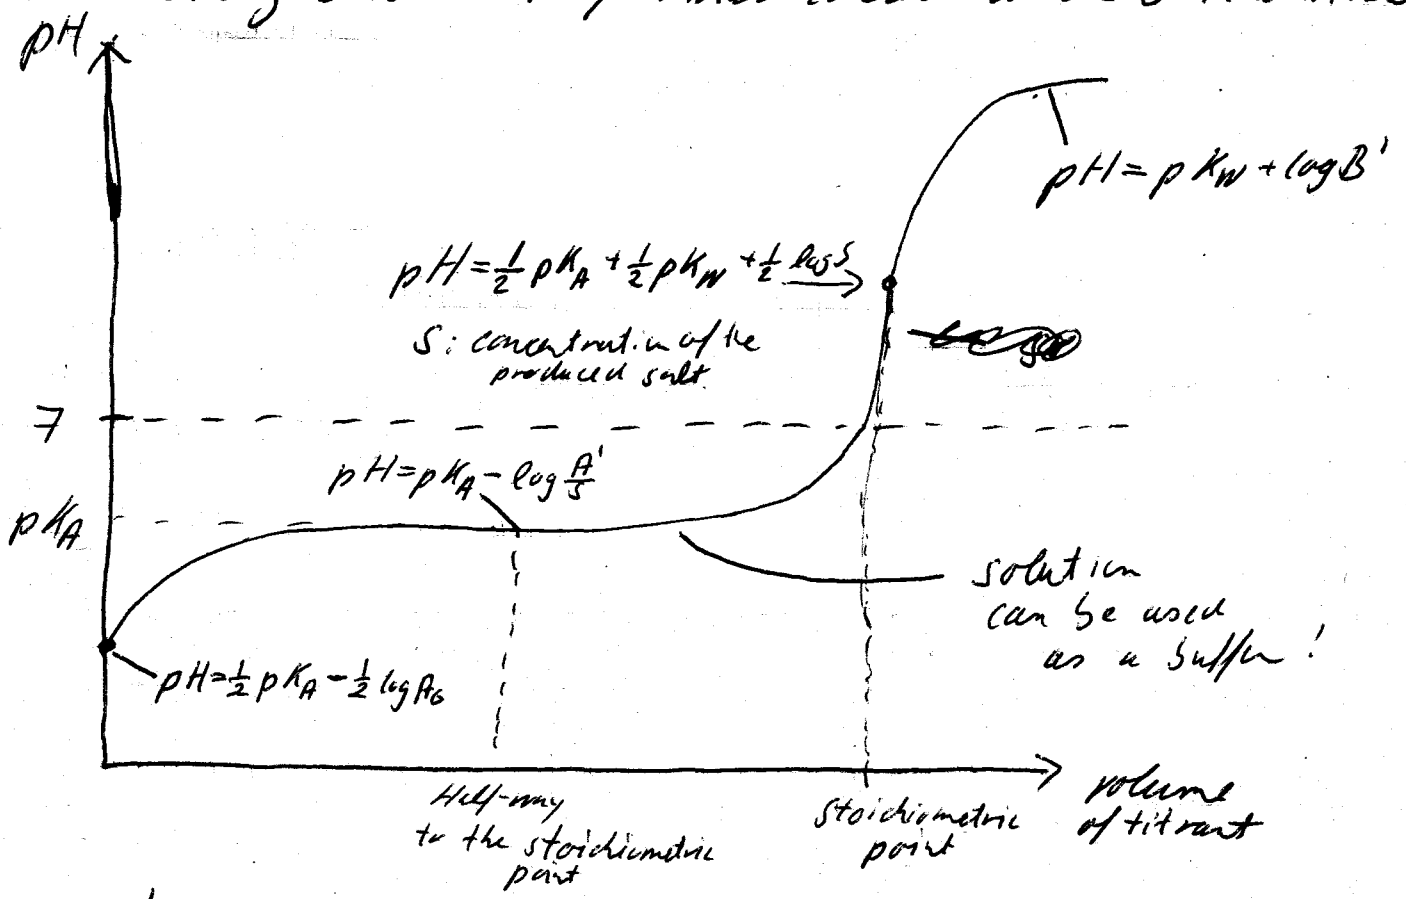 pH
pH = pK_W + log B'
pH = 1/2 pK_A + 1/2 pK_W + 1/2 log S
S: concentration of the
produced salt
7
pH = pK_A - log A'/S
pK_A
solution
can be used
as a buffer!
pH = 1/2 pK_A - 1/2 log A_0
Half-way
to the stoichiometric
point
stoichiometric
point
volume
of titrant